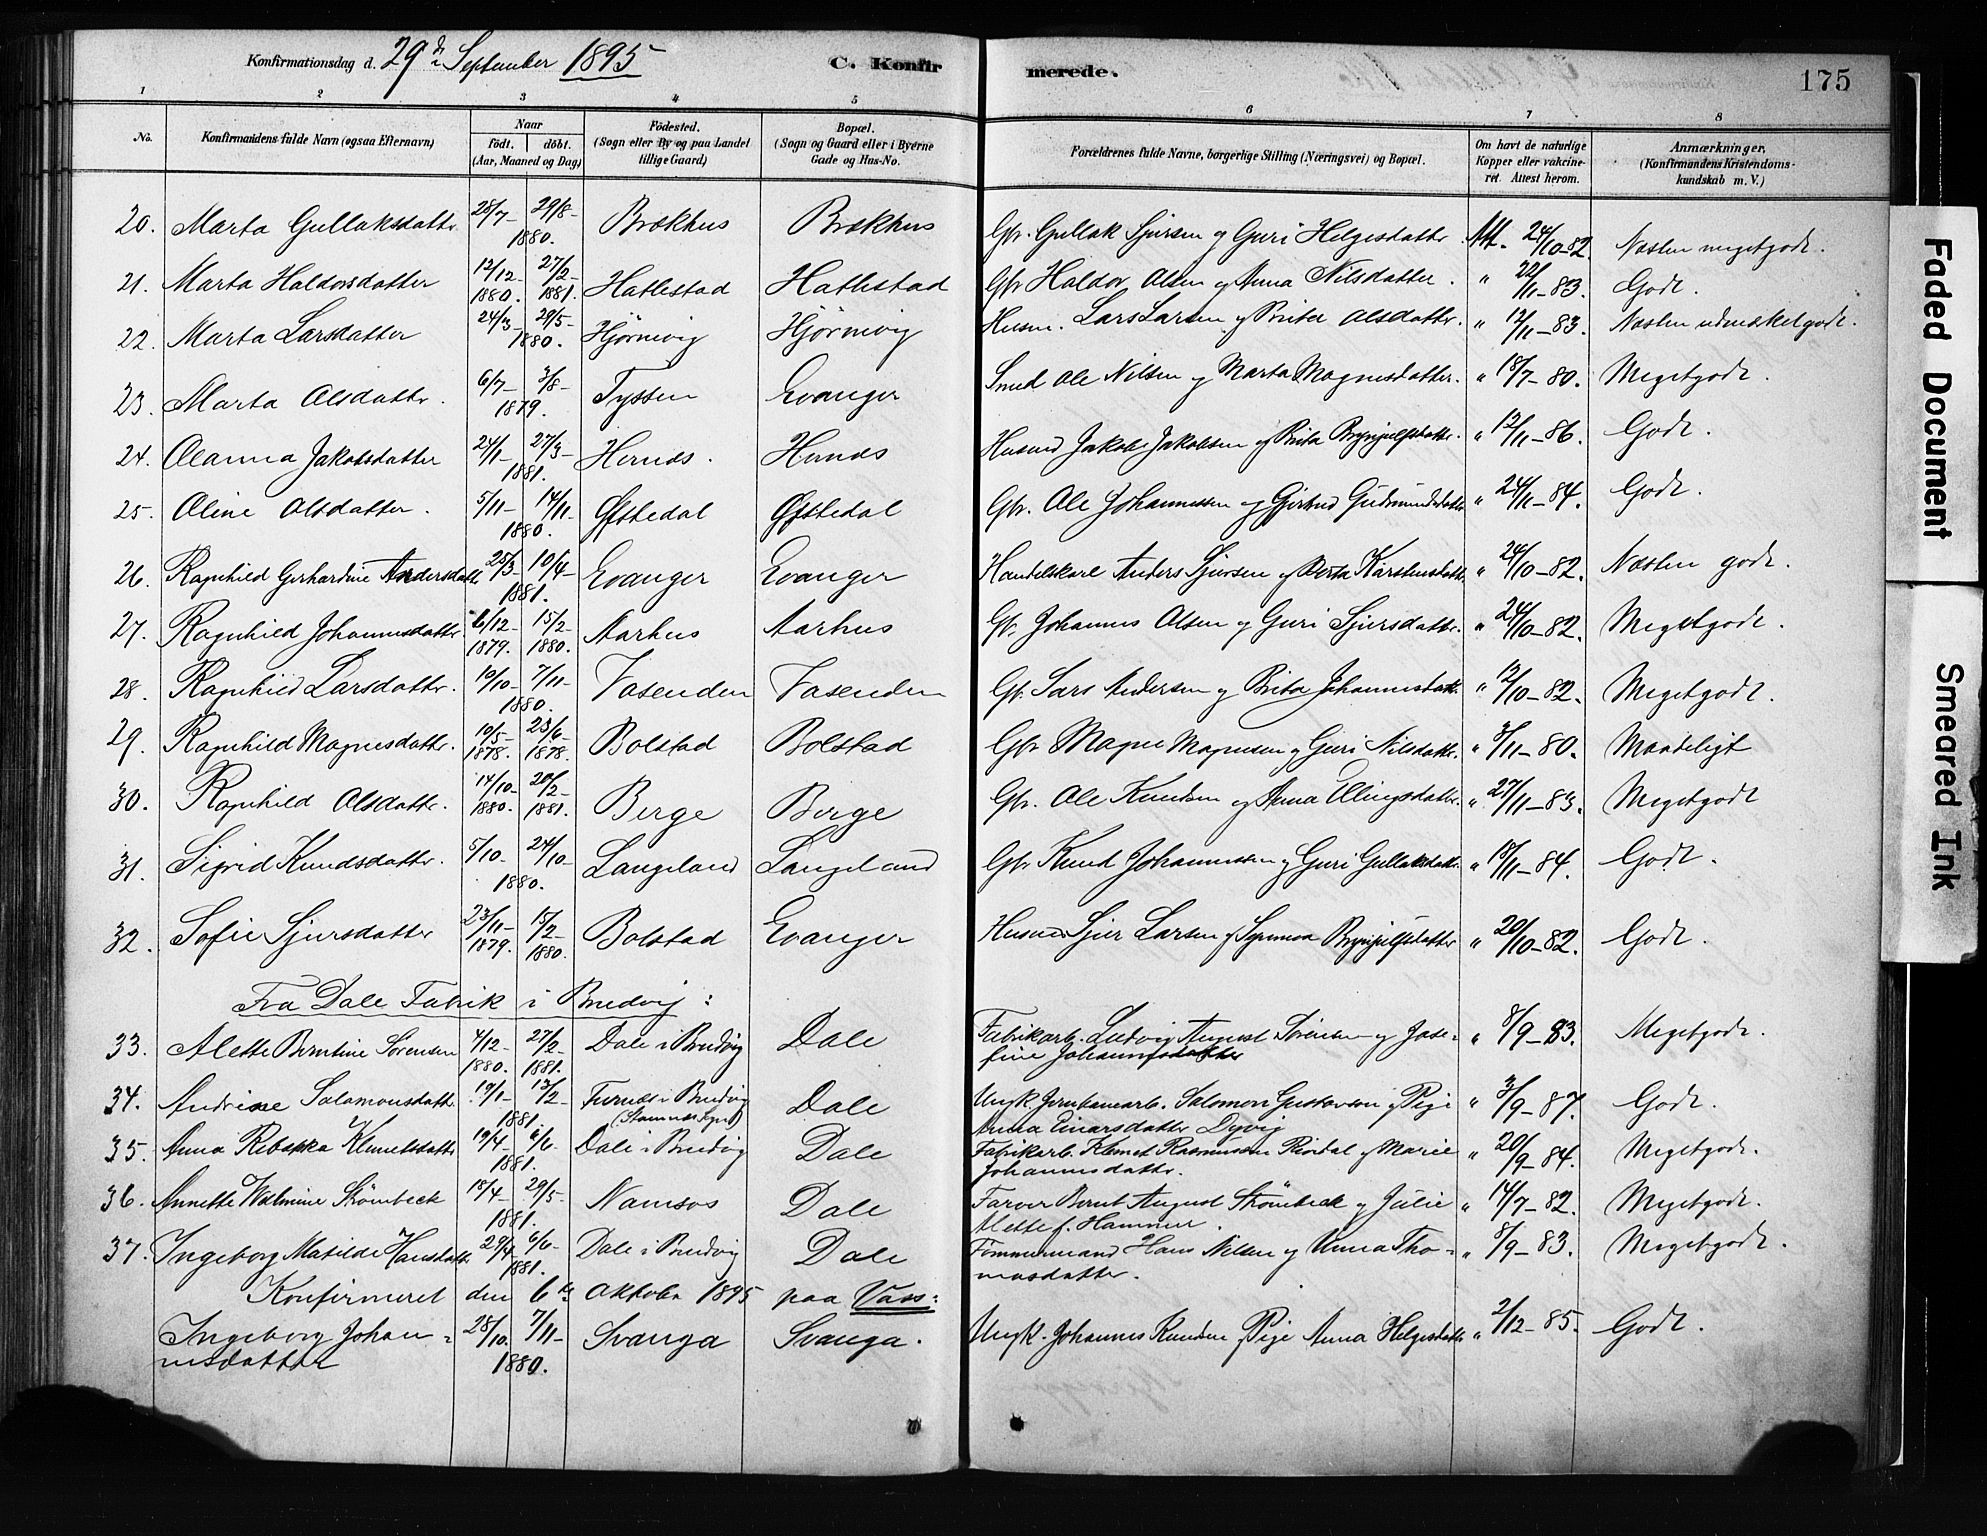 Konfirmationsdag d. 29de September 1895 C. Konfirmerede. 175
1 2 3 4 5 6 7 8
No. Konfirmandens fulde Navn (ogsaa Efternavn) Naar født. døbt. (Aar, Maaned og Dag) Fødested. (Sogn eller By og paa Landet tillige Gaard) Bopæl. (Sogn og Gaard eller i Byerne Gade og Hus-No. Forældrenes fulde Navne, borgerlige Stilling (Næringsvei) og Bopæl. Om havt de naturlige Kopper eller vakcineret. Attest herom. Anmærkninger. (Konfirmandens Kristendomskundskab m. V.)
20. Marta Gullaksdattr 28/7- 29/8- 1880. Brækhus Brækhus Gbr. Gullak Sjursen og Guri Helgesdatter Att. 24/10-82. Næsten megetgodt.
21. Marta Haldorsdatter 12/12- 1880. 27/2- 1881. Hatlestad Hatlestad Gbr Haldor Olsen og Anna Nilsdatter. " 22/11-83. Godt.
22. Marta Larsdatter 24/3- 29/5- 1880. Hjørnevig Hjørnevig Husm. Lars Larsen og Brita Olsdattr. " 12/11-83. Næsten udmerketgodt.
23. Marta Olsdattr. 6/7- 3/8- 1879. Tyssen Evanger Smed Ole Nilsen og Marta Magnesdatter. " 18/7-80. Megetgodt.
24. Oleanna Jakobsdatter 24/1- 27/3- 1881. Hernds. Hernds Husmd Jakob Jakobsen og Brita Brynjulfsdattr. " 12/11-86. Godt.
25. Oline Olsdatter. 5/11- 14/11- 1880. Øfstedal Øfstedal Gbr. Ole Johannessen og Gjertrud Gudmundsdattr " 24/11-84. Godt.
26. Ragnhild Gerhardine Andersdattr 25/3- 10/4- 1881. Evanger Evanger Handelskarl Anders Sjursen og Berta Karstensdattr " 24/10-82. Næsten godt.
27. Ragnhild Johannesdattr 6/12- 1879. 15/2- 1880. Aarhus Aarhus Gbr. Johannes Olsen og Guri Sjursdattr. " 24/10-82. Megetgodt.
28. Ragnhild Larsdattr. 10/10- 7/11- 1880. Vasenden Vasenden Gbr. Lars Andersen og Brita Johannesdattr. " 12/10-82. Megetgodt.
29. Ragnhild Magnesdattr. 10/5- 1878. 23/6- 1878. Bolstad Bolstad Gbr Magne Magnesen og Guri Nilsdattr. " 3/11-80. Maadeligt
30. Ragnhild Olsdattr. 14/10- 1880. 20/2- 1881. Berge Berge Gbr. Ole Knudsen og Anna Ellingsdatter. " 27/11-83. Megetgodt
31. Sigrid Knudsdattr. 5/10- 24/10- 1880. Langeland Langeland Gbr Knud Johannessen og Guri Gullaksdattr. " 18/11-84. Godt.
32. Sofie Sjursdatter 23/11- 1879. 15/2- 1880. Bolstad Evanger Husmd Sjur Larsen og Synneva Brynjulfsdatter " 20/10-82. Godt.
Fra Dale Fabrik i Bruvig:
33. Alette Berntine Sørensen 4/12- 1880. 27/2- 1881. Dale i Bruvig Dale Fabrikarb. Ludvig August Sørensen og Josefine Johannesdatter " 8/9-83. Megetgodt.
34. Andrine Salamonsdattr. 19/1- 13/2- 1881 Furnes i Bruvig (Stamnes Sogn) Dale Ungk. Jernbanearb. Salomon Gustavson og Pige Anna Einarsdatter Dyvig " 3/9-87. Godt.
35. Anna Rebekka Klemetsdattr 19/4- 6/6- 1881. Dale i Bruvig Dale Fabrikarb. Klemet Rasmussen og Marie Johannesdattr. " 20/9-84. Megetgodt.
36. Annette Wilhelmine Strømbeck 18/4- 29/5- 1881. Namsos Dale Farver Bernt August Strømbeck og Julie Alette f. Hammer. " 14/7-82. Megetgodt.
37. Ingeborg Matilde Hansdattr 29/4- 6/6- 1881. Dale i Bruvig Dale Tømmermand Hans Nilsen og Anna Thomasdatter. " 8/9-83. Megetgodt.
Konfirmeret den 6te Oktober 1895 paa Vass:
Ingeborg Johannesdatter 28/10. 7/11- 1880. Svanga Svanga. Ungk. Johannes Knudsen og Pige Anna Helgesdattr " 2/12-85. Godt.
Faded Document
Smeared Ink